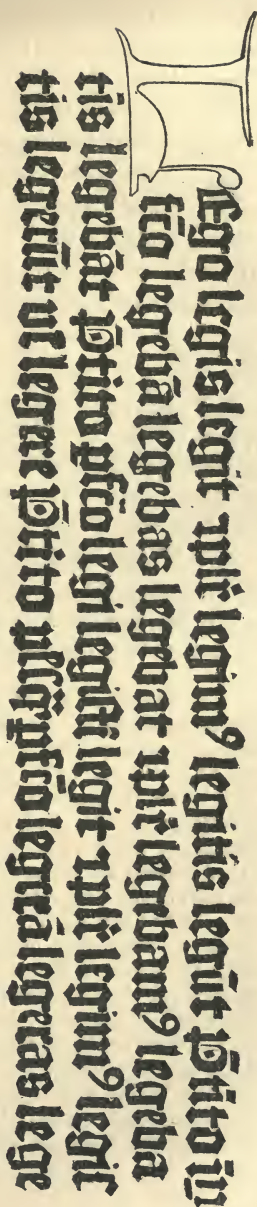 LEgo legis legit ⁊plr̄ legimꝰ legitis legūt P̄tito īp
fc̄o legebā legebas legebat ⁊plr̄ legebamꝰ legeba
tis legebāt P̄tito pfc̄o legi legisti legit ⁊plr̄ legimꝰ legis
tis legerūt vl̄ legere P̄tito pl̄usq̄pfc̄o legerā legeras lege